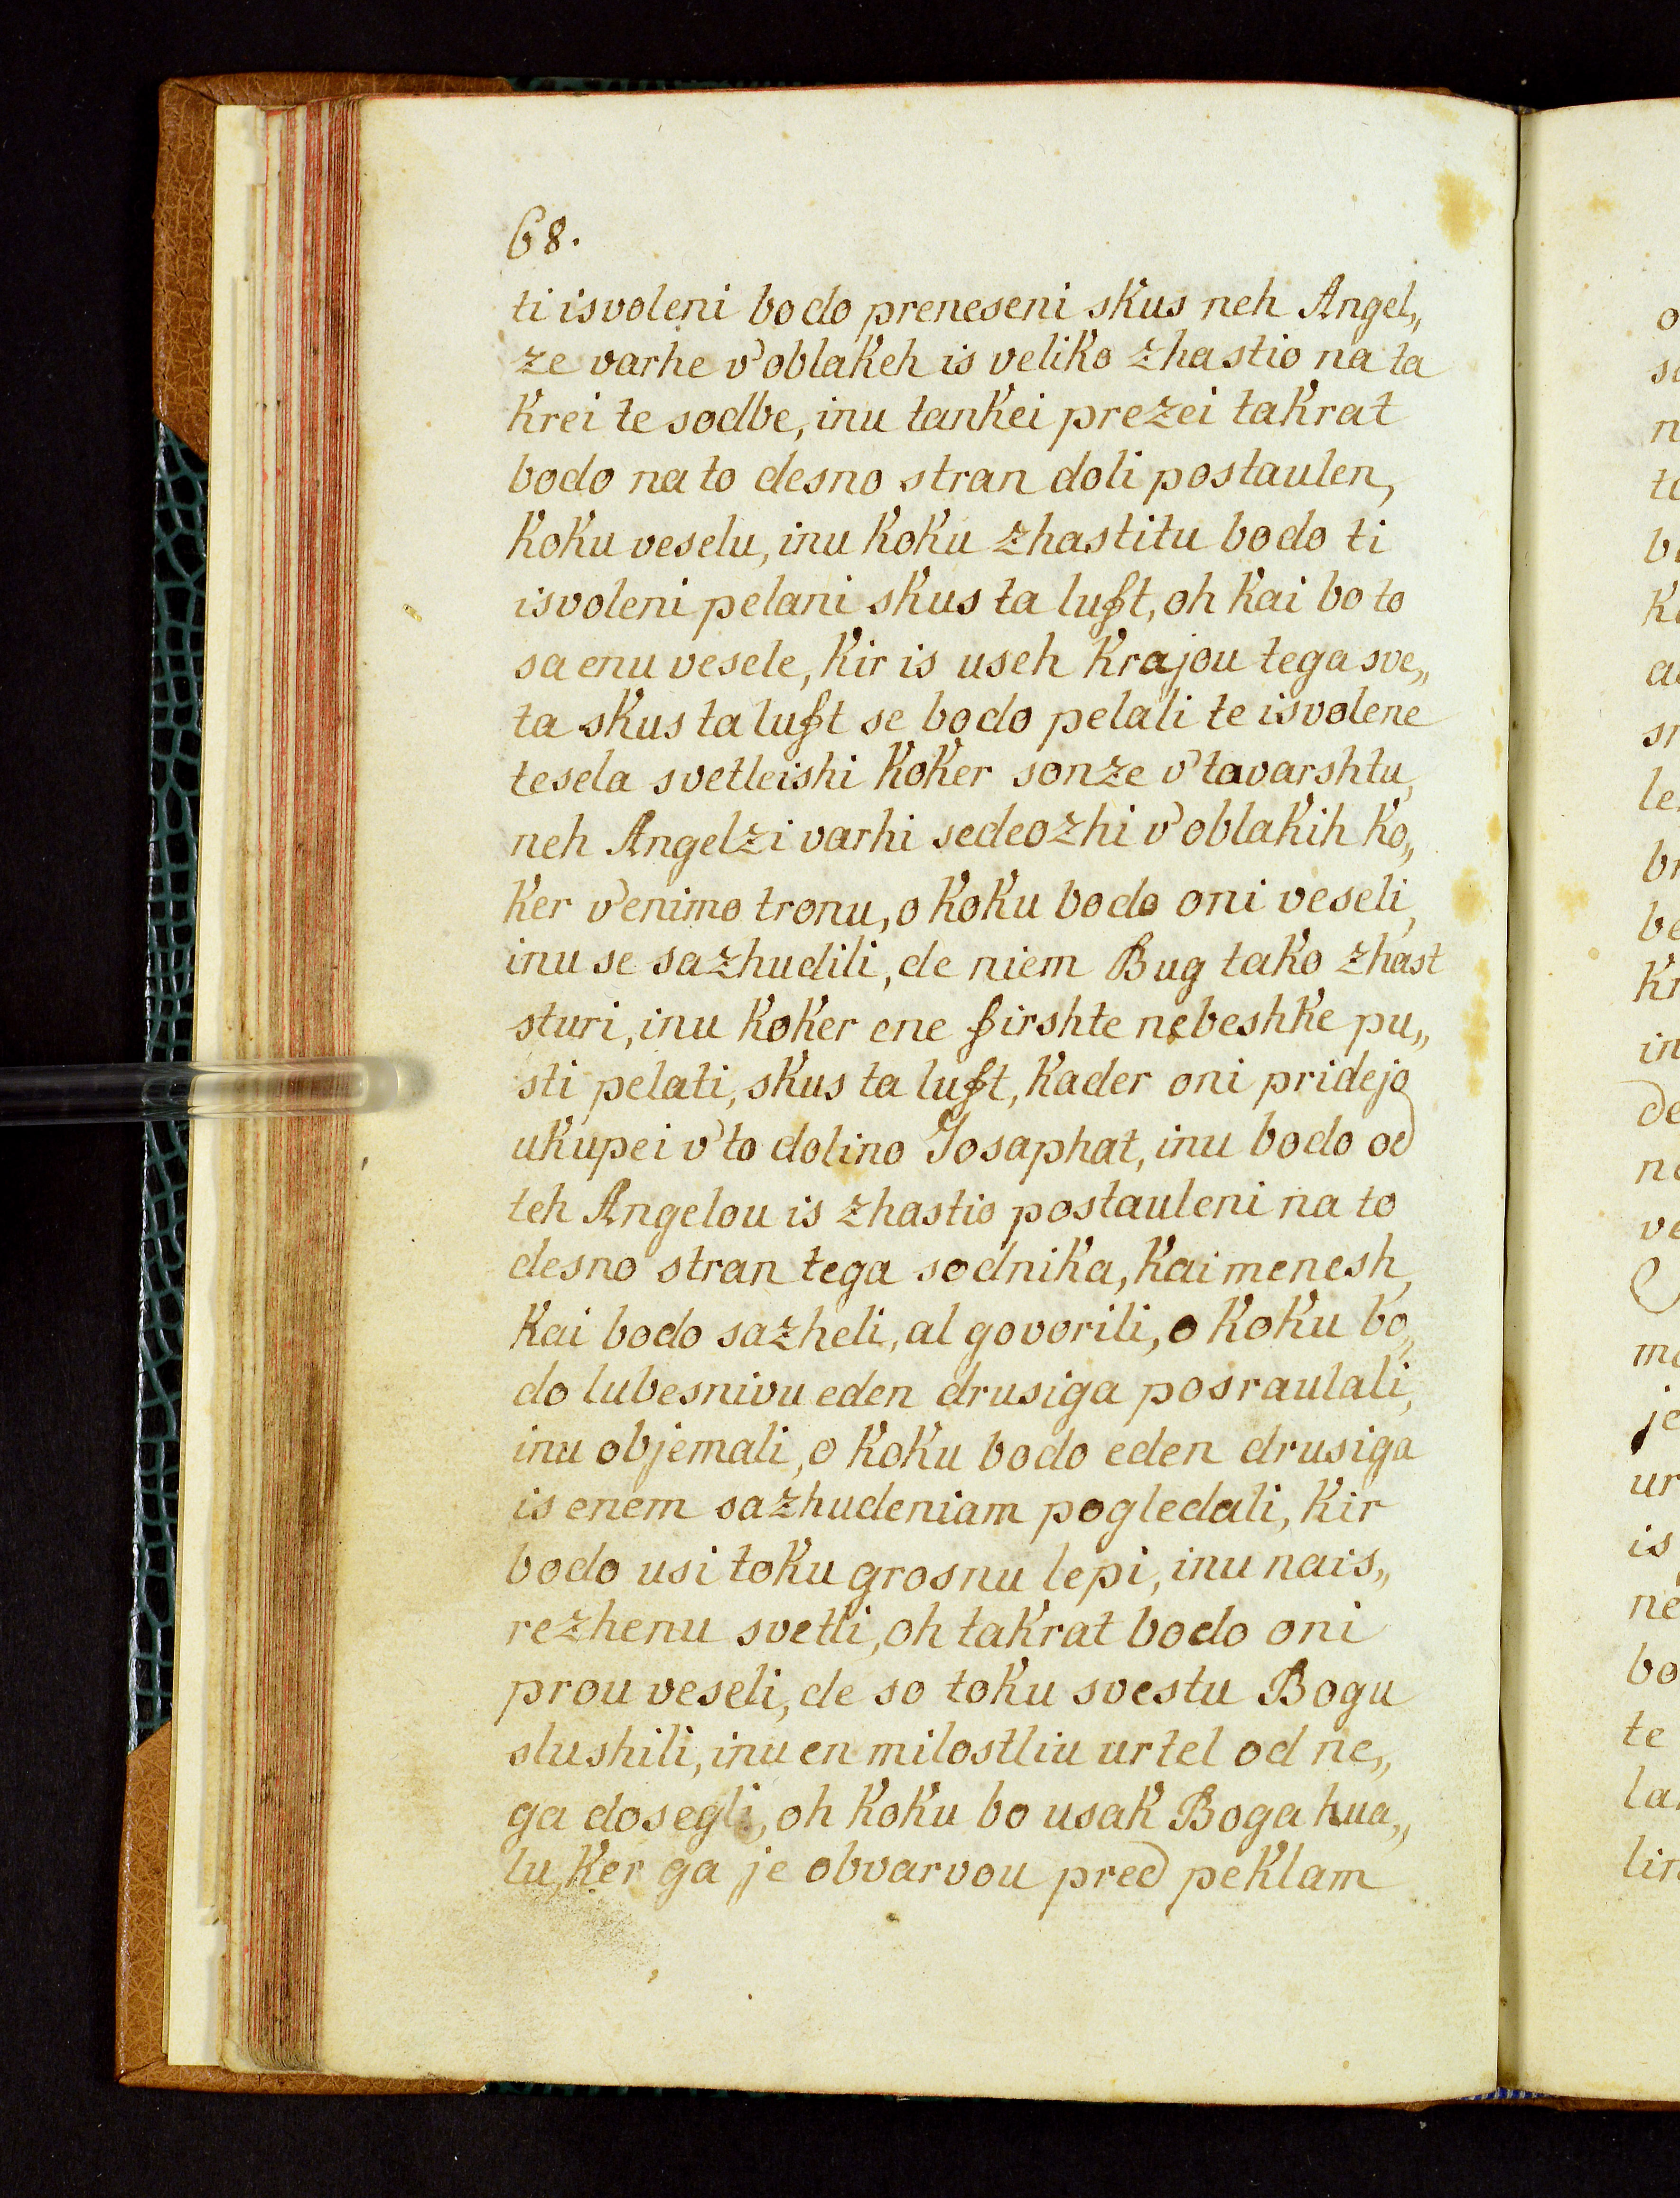 68.
ti isvoleni bodo preneseni skus neh Angel„
ze varhe v'oblakeh is veliko zhastio na ta
krei te sodbe, inu tankei prezei takrat
bodo na to desno stran doli postaulen,
koku veselu, inu koku zhastitu bodo ti
isvoleni pelani skus ta luft, oh kai bo to
sa enu vesele, kir is useh krajou tega sve„
ta skus ta luft se bodo pelali te isvolene
tesela svetleishi koker sonze v'tavarshtu,
neh Angelzi varhi sedeozhi v'oblakih ko„
ker v'enimo tronu, o koku bodo oni veseli,
inu se sazhudili, de niem Bug tako zhast
sturi, inu koker ene firshte nebeshke pu„
sti pelati, skus ta luft, kader oni pridejo
ukupei v'to dolino Josaphat, inu bodo od
teh Angelou is zhastio postauleni na to
desno stran tega sodnika, kai menesh,
kai bodo sazheli, al govorili, o koku bo„
do lubesnivu eden drusiga posraulali,
inu objemali, o koku bodo eden drusiga
is enem sazhudeniam pogledali, kir
bodo usi toku grosnu lepi, inu nais„
rezhenu svetli, oh takrat bodo oni
prou veseli, de so toku svestu Bogu
slushili, inu en milostliu urtel od ne„
ga dosegli, oh koku bo usak Boga hua„
lu, ker ga je obvarvou pred peklam